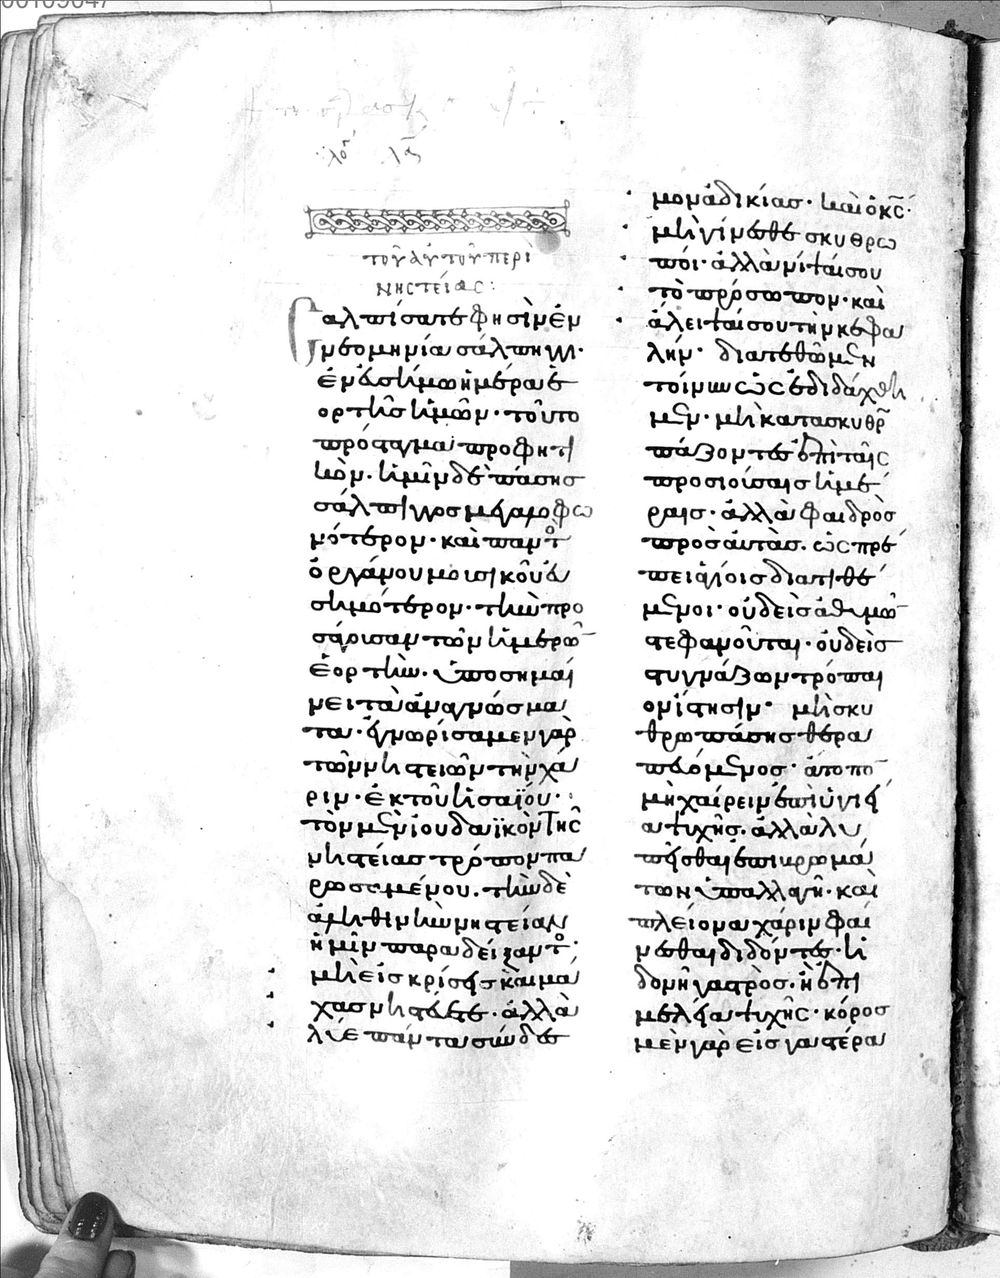 τοῦ αὐτοῦ περὶ
νηστείας:
Σαλπίσατε φησὶν ἐν
νεομηνία σάλπιγγι·
ἐν εὐσήμω ἡμέρα ἑ
ορτῆς ἡμῶν· τοῦτο
πρόσταγμά προφητι
κὸν· ἡμῖν δὲ πάσης
σάλπιγγος μεγαλοφω
νότερον· καὶ παντὸ
ὀργάνου μουσικοῦ εὐ
σημότερον· τὴν προ
σάγουσαν τῶν ἡμερῶ
ἑορτὴν· ὑποσημαί
νει τὰ ἀναγνώσμα
τα· ἐγνωρίσαμεν γὰρ
τῶν νηστειῶν τὴν χά
ριν· ἐκ τοῦ ἡσαΐου·
τὸν μὲν ἰουδαϊκὸν τῆς
νηστείας τρόπον πα
ρωσαμένου· τὴν δὲ
ἀληθινὴν νηστείαν
ἡμῖν παραδείξαντο·
μὴ εἰς κρίσεις καὶ μά
χας νηστεύετε· ἀλλὰ
λύε πάντα σύνδεσ
μον ἀδικίας· καὶ ὁ κς·
μὴ γίνεσθε σκυθρω
ποί· ἀλλὰ νίψαι σου
τὸ πρόσωπον· καὶ
ἄλειψαί σου τὴν κεφα
λήν· διατεθῶμεν
τοίνυν ὡς ἐδιδάχθη
μεν· μὴ κατασκυθρ
πάζοντες ἐπὶ ταῖς
προσιούσαις ἡμέ
ραις· ἀλλὰ φαιδρὸς
πρὸς αὐτὰς· ὡς πρέ
πει ἁγίοις διατιθέ
μενοι· οὐδεὶς ἀθυμῶ
στεφανοῦται· οὐδεὶς
στυγνάζων τρόπαι
ον ἵστησιν· μὴ σκυ
θρωπάσης θερα
πευόμενος· ἄτοπο
μὴ χαίρειν ἐπὶ ὑγιεί
α ψυχῆς· ἀλλὰ λυ
πεῖσθαι ἐπὶ βρωμά
των ὑπαλλαγῆ· καὶ
πλείονα χάριν φαί
νεσθαι διδόντες· ἡ
δονῆ γαστρὸς· ἢ ἐπι
μελεία ψυχῆς· κόρος
μὲν γὰρ εἰς γαστέρα